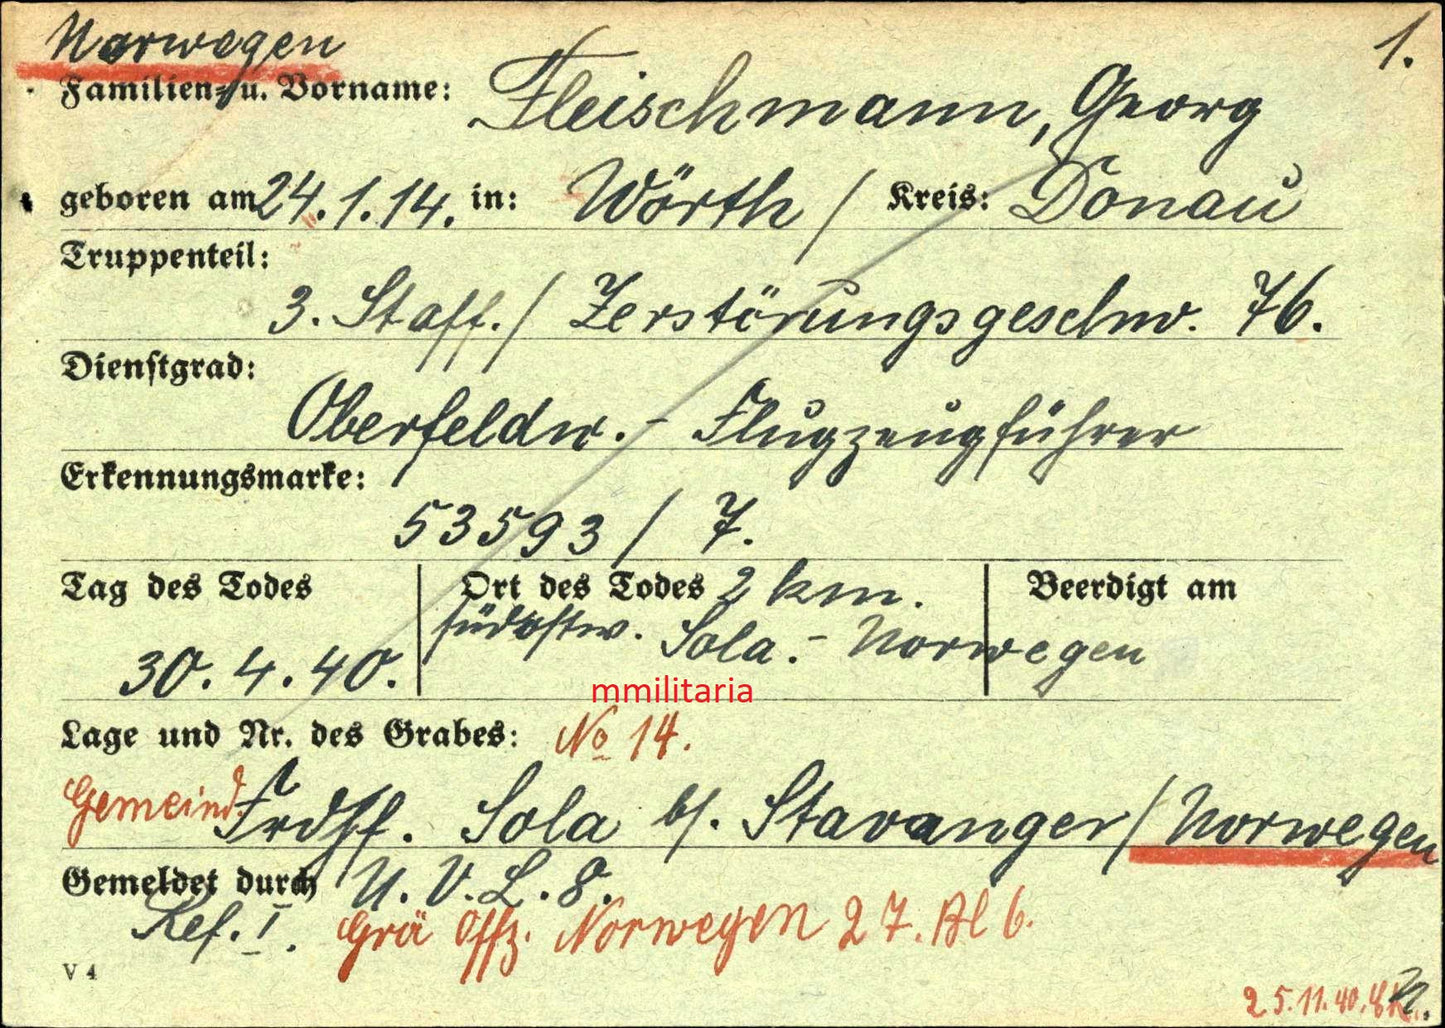 Norwegen
1.
Familien- u. Vorname: Fleischmann, Georg
geboren am 24.1.14. in: Wörth / Kreis: Donau
Truppenteil:
3. Staff. / Zerstörungsgeschw. 76.
Dienstgrad:
Oberfeldw. - Flugzeugführer
Erkennungsmarke:
53593 / 7.
Tag des Todes
30.4.40.
Ort des Todes 2 km.
südostw. Sola. - Norwegen
Beerdigt am
mmilitaria
Lage und Nr. des Grabes: No 14.
Gemeind. Frdhf. Sola b/. Stavanger / Norwegen
Gemeldet durch U. V. L. 8.
Ref. I. Grä Offz. Norwegen 27. Bl 6.
V 4
25.11.40.